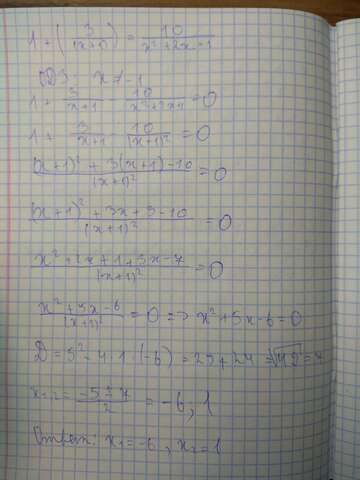 1 + (3/(x+1)) = 10/(x²+2x+1)
ОДЗ: x ≠ -1
1 + 3/(x+1) - 10/(x²+2x+1) = 0
1 + 3/(x+1) - 10/(x+1)² = 0
((x+1)² + 3(x+1) - 10)/(x+1)² = 0
((x+1)² + 3x + 3 - 10)/(x+1)² = 0
(x² + 2x + 1 + 3x - 7)/(x+1)² = 0
(x² + 5x - 6)/(x+1)² = 0 => x² + 5x - 6 = 0
D = 5² - 4·1·(-6) = 25 + 24 = √49 = 7
x₁,₂ = (-5 ± 7)/2 = -6, 1
Ответ: x₁ = -6, x₂ = 1